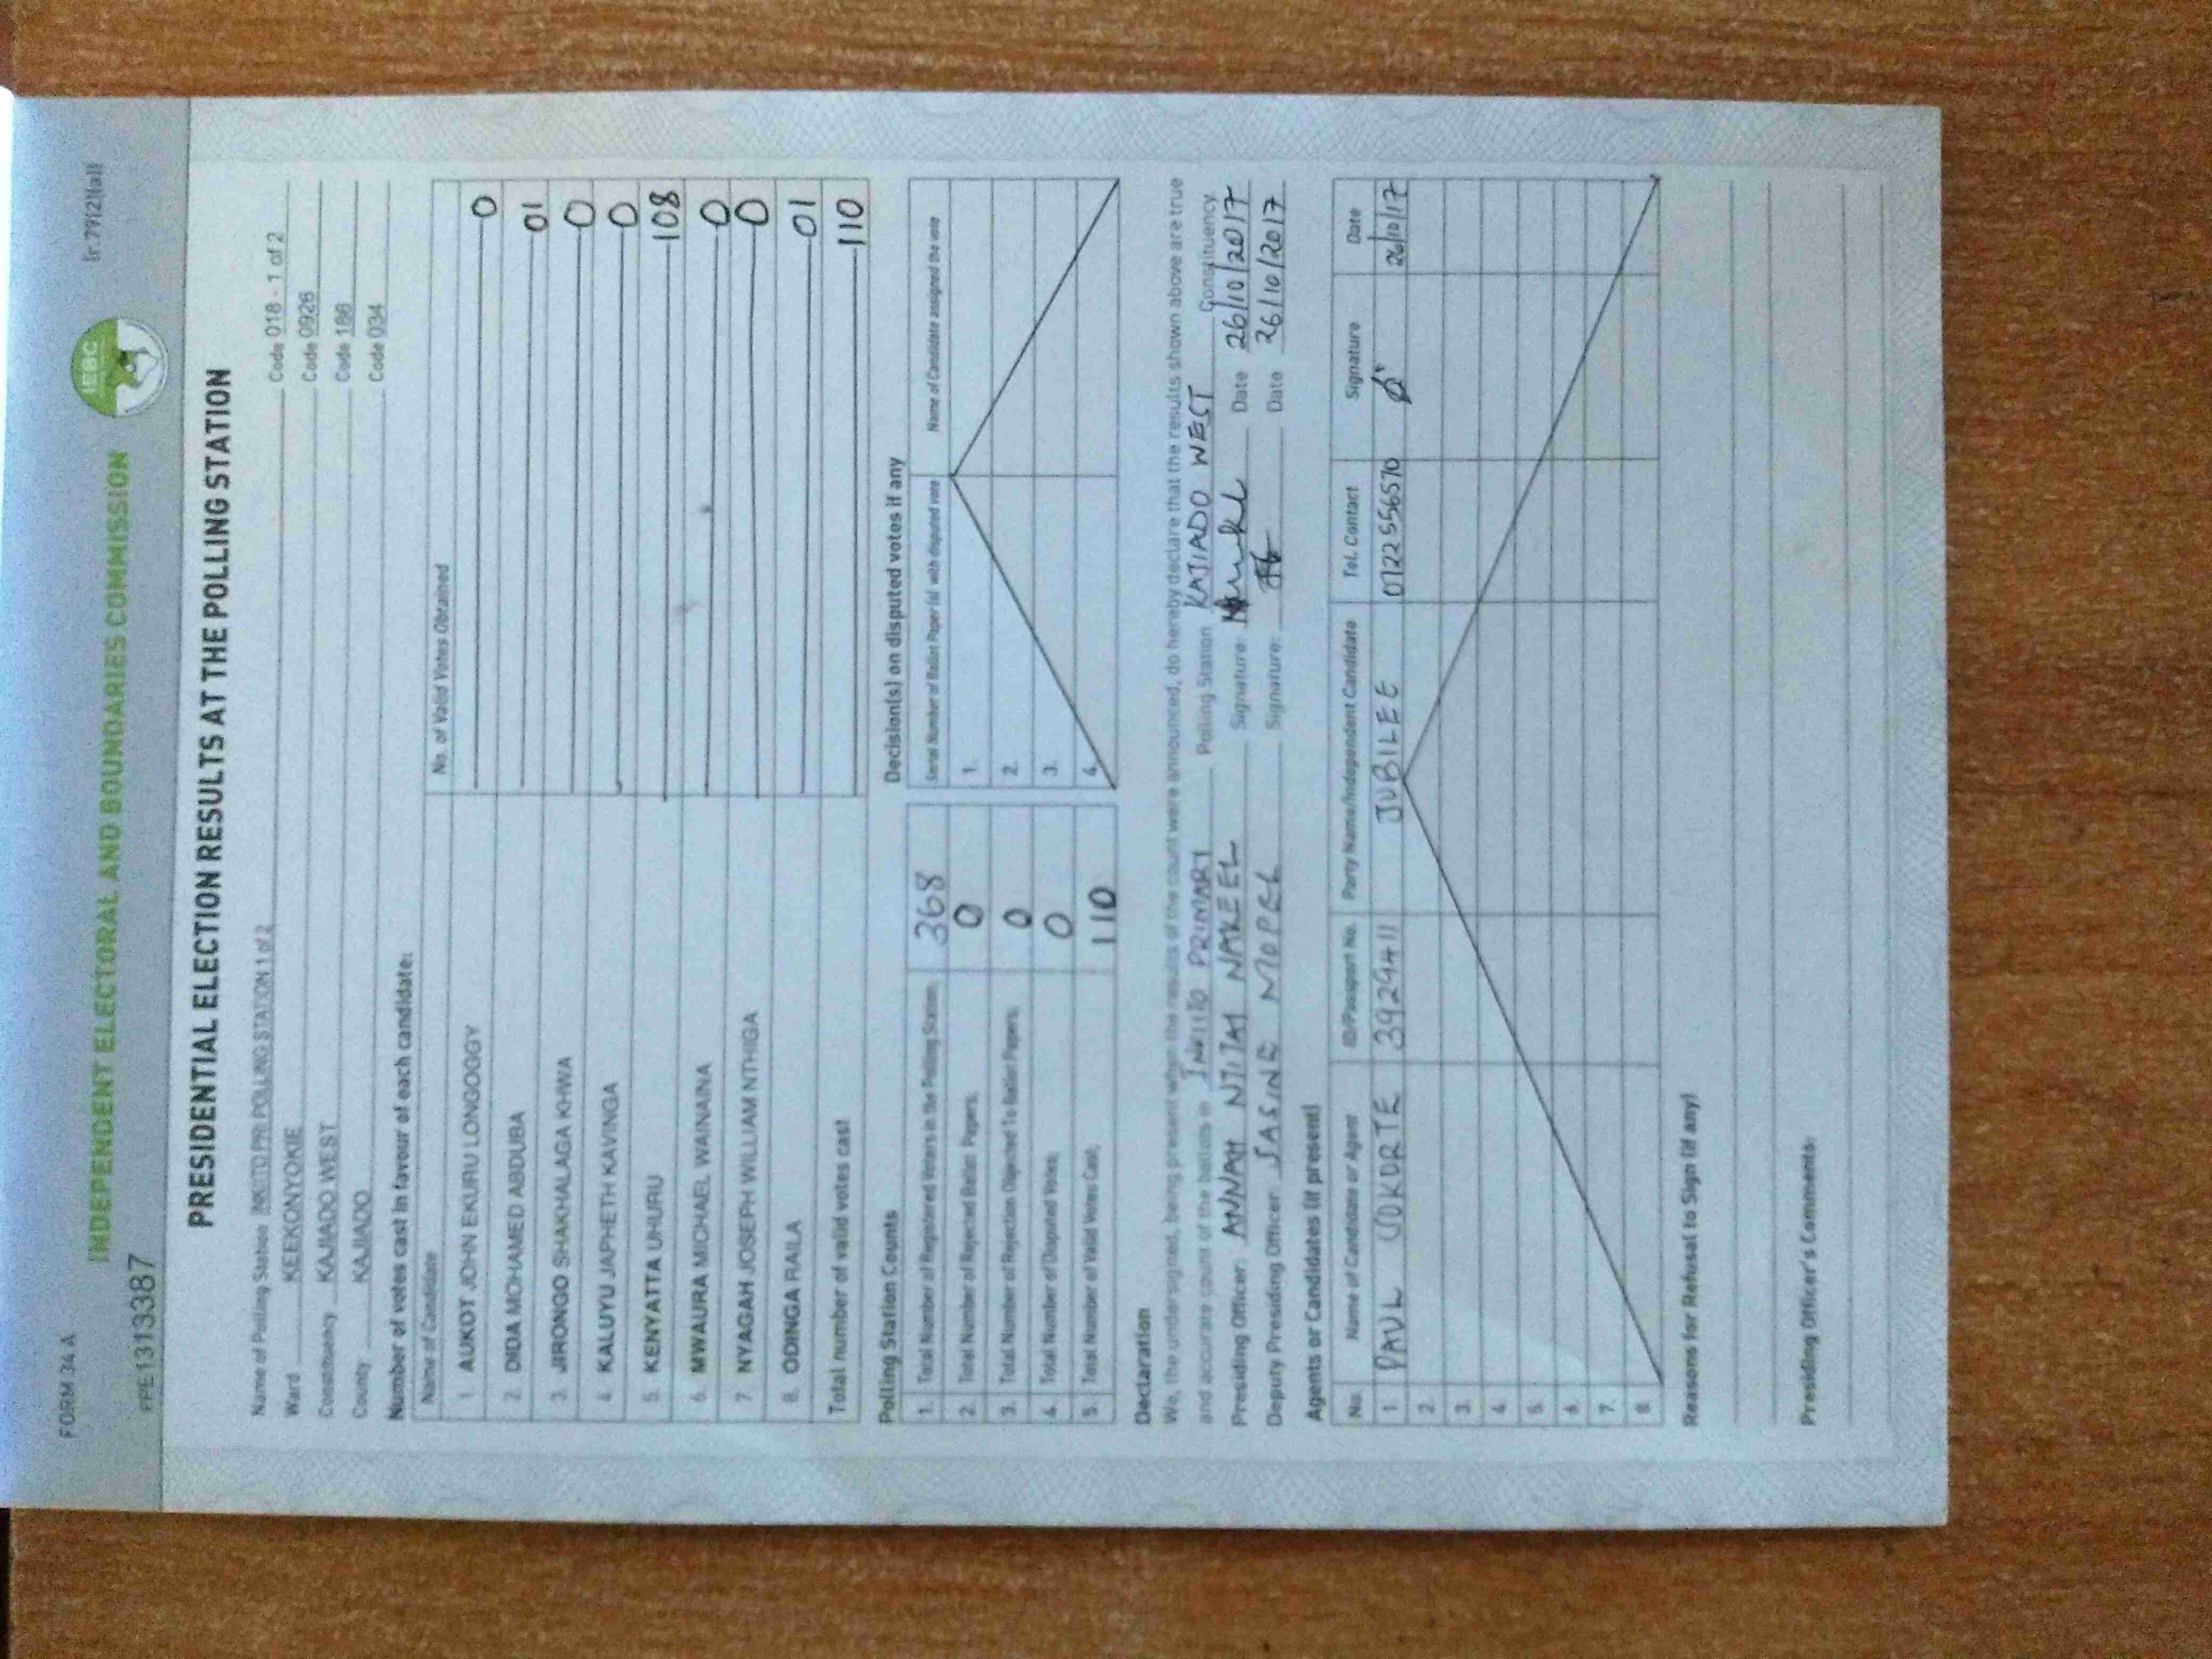 FORM 34 A
[r.79(2)(a)]
IEBC
INDEPENDENT ELECTORAL AND BOUNDARIES COMMISSION
PE1313387
PRESIDENTIAL ELECTION RESULTS AT THE POLLING STATION
Name of Polling Station INKIITO PRI POLLING STATION 1 of 2 Code 018 - 1 of 2
Ward KEEKONYOKIE Code 0926
Constituency KAJIADO WEST Code 186
County KAJIADO Code 034
Number of votes cast in favour of each candidate:
Name of Candidate No. of Valid Votes Obtained
1. AUKOT JOHN EKURU LONGOGGY 0
2. DIDA MOHAMED ABDUBA 01
3. JIRONGO SHAKHALAGA KHWA 0
4. KALUYU JAPHETH KAVINGA 0
5. KENYATTA UHURU 108
6. MWAURA MICHAEL WAINAINA 0
7. NYAGAH JOSEPH WILLIAM NTHIGA 0
8. ODINGA RAILA 01
Total number of valid votes cast 110
Polling Station Counts
1. Total Number of Registered Voters in the Polling Station 368
2. Total Number of Rejected Ballot Papers 0
3. Total Number of Rejection Objected To Ballot Papers 0
4. Total Number of Disputed Votes 0
5. Total Number of Valid Votes Cast 110
Decision(s) on disputed votes if any
Serial Number of Ballot Paper (s) with disputed vote Name of Candidate assigned the vote
1.
2.
3.
4.
Declaration
We, the undersigned, being present when the results of the count were announced, do hereby declare that the results shown above are true
and accurate count of the ballots in INKIITO PRIMARY Polling Station KAJIADO WEST Constituency.
Presiding Officer: ANNAH NTITAI NAKEEL Signature: Date 26/10/2017
Deputy Presiding Officer: SASINE MOPEL Signature: Date 26/10/2017
Agents or Candidates (if present)
No. Name of Candidate or Agent ID/Passport No. Party Name/Independent Candidate Tel. Contact Signature Date
1. PAUL 3929411 JUBILEE 0722556570 26/10/17
2.
3.
4.
5.
6.
7.
8.
Reasons for Refusal to Sign (if any)
Presiding Officer's Comments: